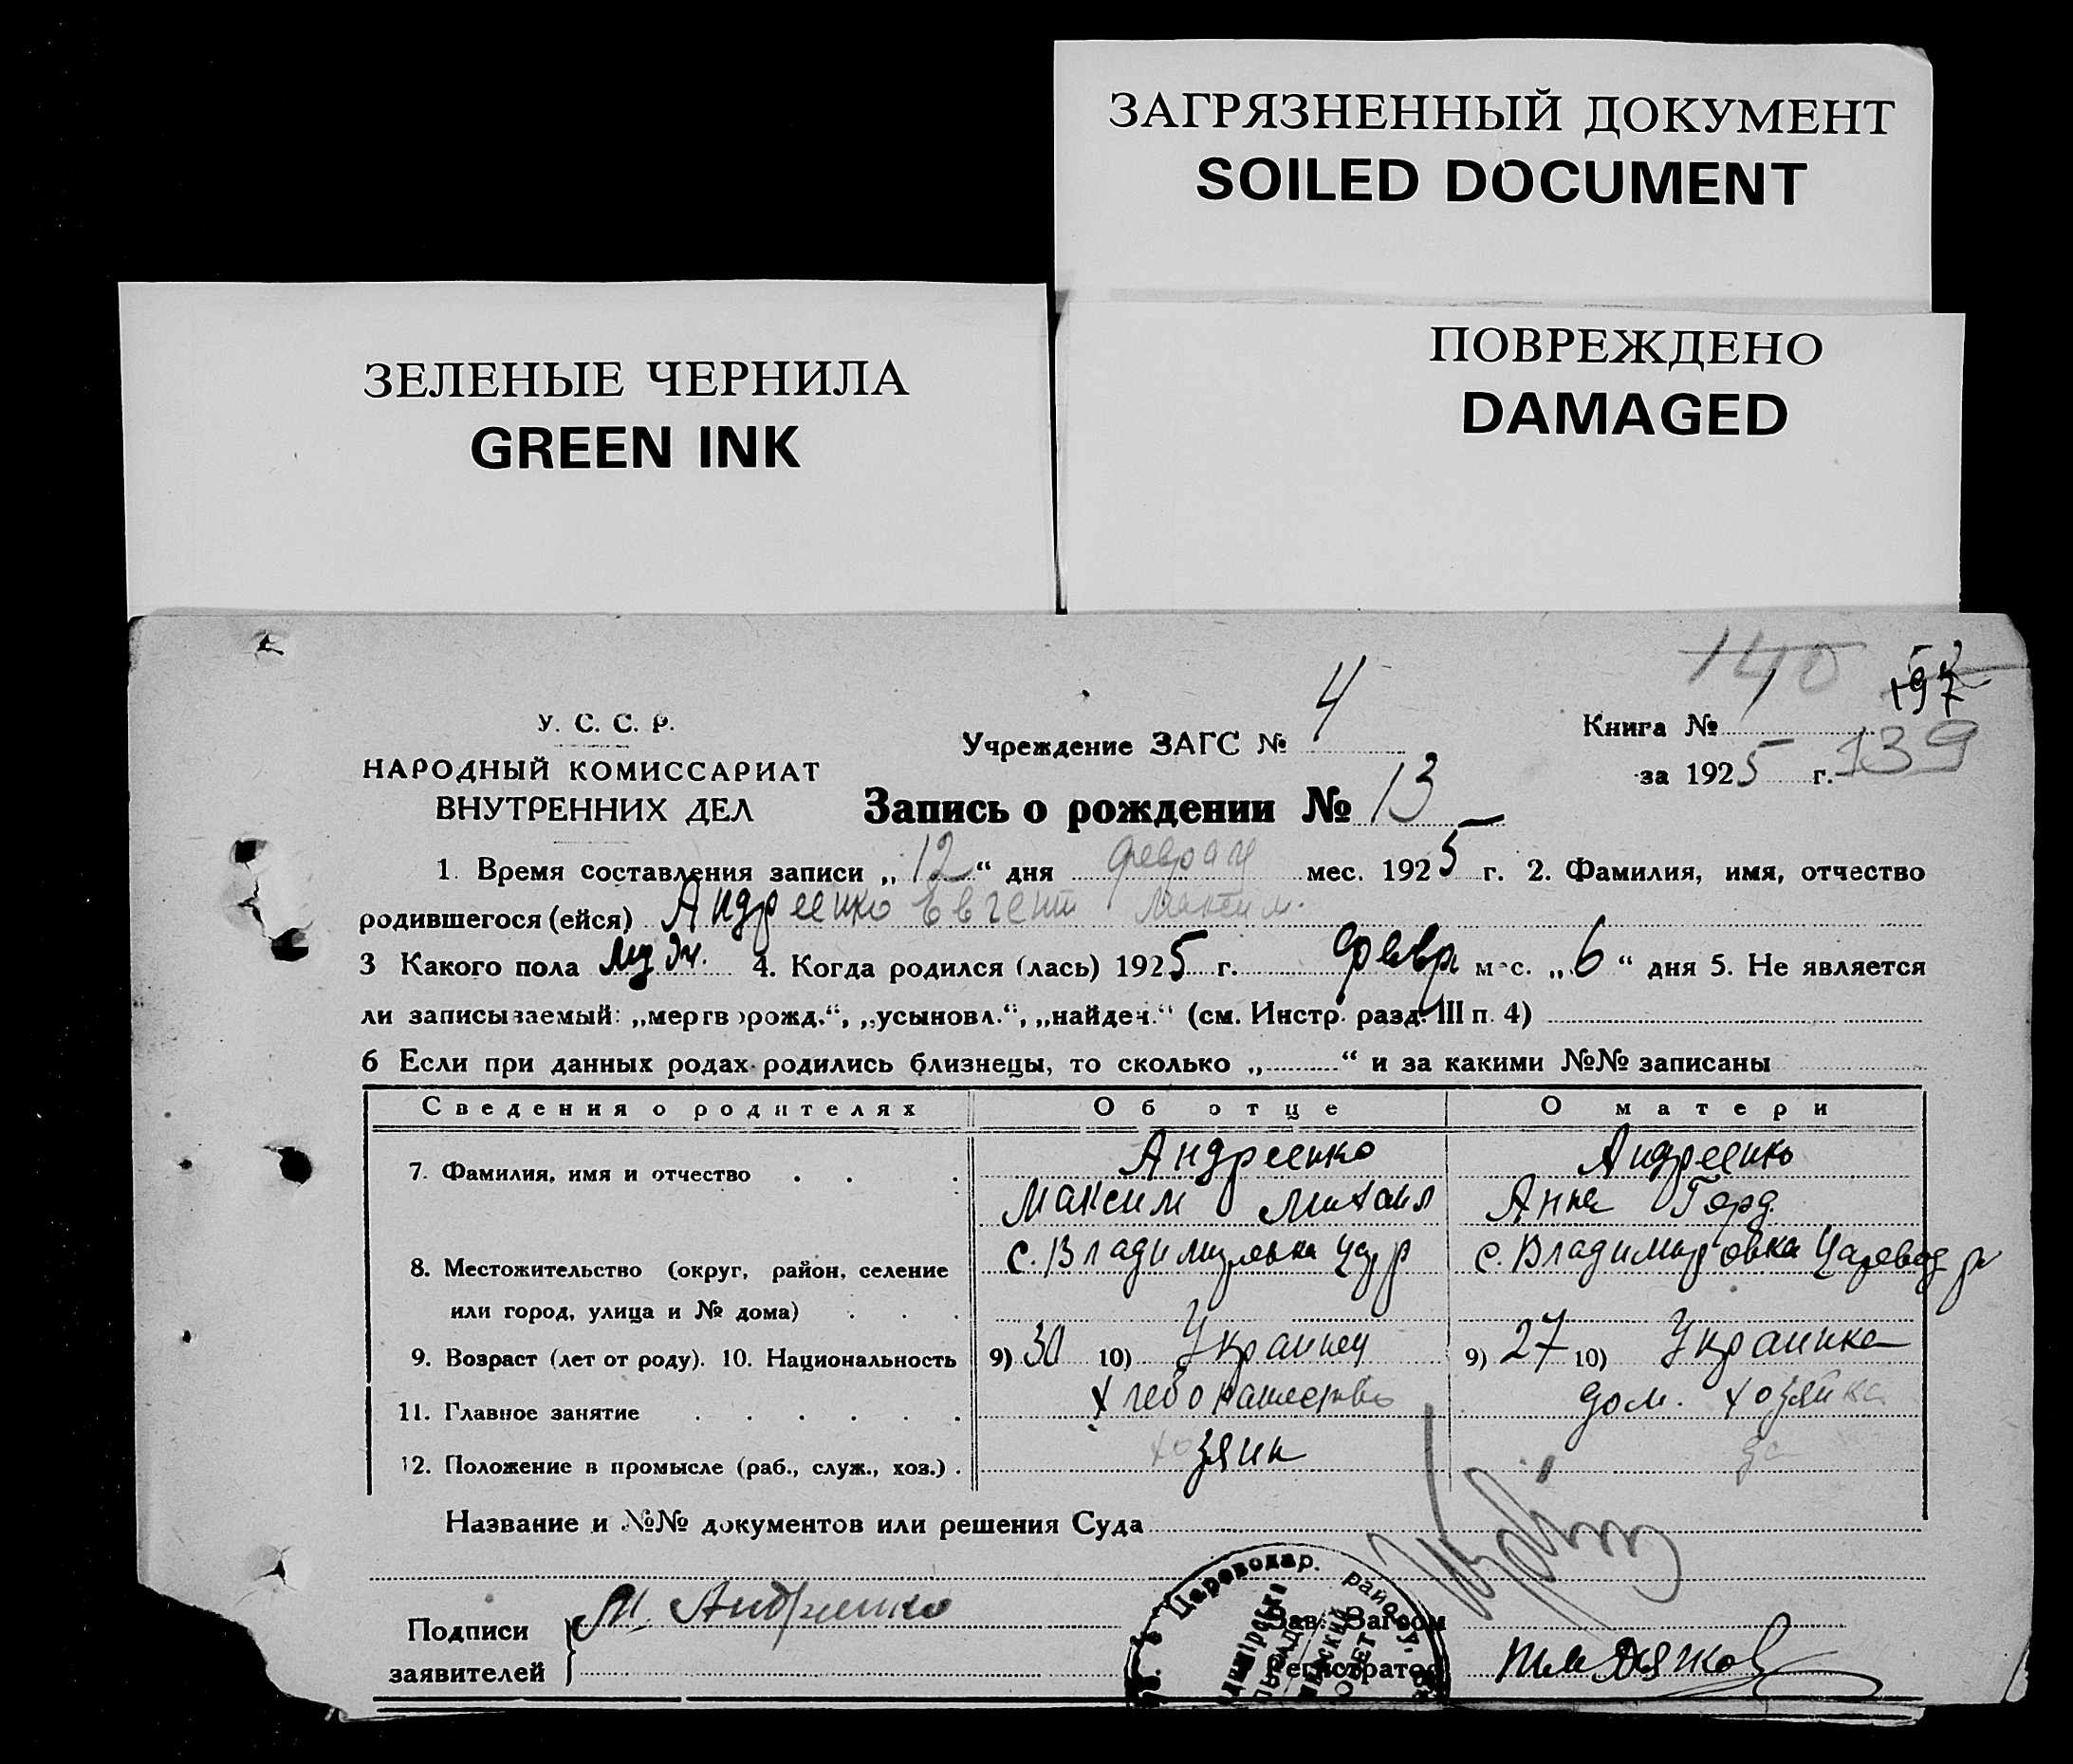 ЗАГРЯЗНЕННЫЙ ДОКУМЕНТ
SOILED DOCUMENT
ЗЕЛЕНЫЕ ЧЕРНИЛА
GREEN INK
ПОВРЕЖДЕНО
DAMAGED
140
197
У. С. С. Р.
НАРОДНЫЙ КОМИССАРИАТ
ВНУТРЕННИХ ДЕЛ
Учреждение ЗАГС № 4
Книга № 1
за 1925 г. 139
Запись о рождении № 13
1. Время составления записи „12“ дня февраля мес. 1925 г. 2. Фамилия, имя, отчество
родившегося (ейся) Андреенко Евгений Максим.
3 Какого пола муж. 4. Когда родился (лась) 1925 г. февр мес. „6“ дня 5. Не является
ли записываемый: „мертворожд.“, „усыновл.“, „найден.“ (см. Инстр. разд. III п. 4)
6 Если при данных родах родились близнецы, то сколько „ “ и за какими №№ записаны
Сведения о родителях Об отце О матери
7. Фамилия, имя и отчество Андреенко Андреенко
Максим Михаил Анна Горд
8. Местожительство (округ, район, селение с. Владимировка Цар р с. Владимировка Царевод р
или город, улица и № дома)
9. Возраст (лет от роду). 10. Национальность 9) 30 10) Украинец 9) 27 10) Украинка
11. Главное занятие Хлебопашество дом. хозяйка
12. Положение в промысле (раб., служ., хоз.) хозяин
Название и №№ документов или решения Суда
Подписи М. Андреенко Зав. Загсом
заявителей Регистратор
Цареводар. району